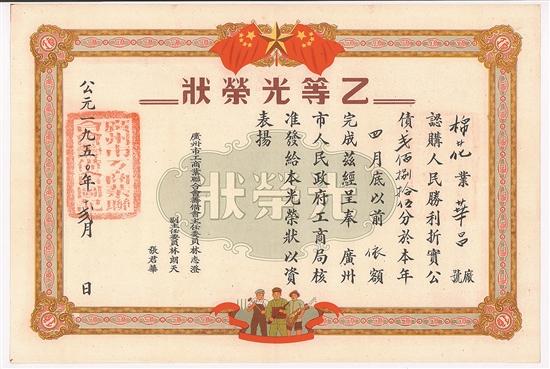 乙等光榮狀
棉花業華昌廠號
認購人民勝利折實公
債弍佰捌拾伍分於本年
四月底以前 依額
完成茲經呈奉 廣州
市人民政府工商局核
准發給本光榮狀以資
表揚
光榮狀
廣州市工商業聯合會籌備會主任委員林志澄
副主任委員林朗天
張君華
公元一九五〇年 月 日